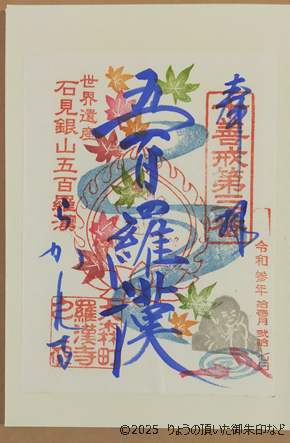 奉拝
十善戒第
令和 参年 拾壱月 弐拾七日
五百羅漢
世界遺産
石見銀山五百羅漢
らかん寺
羅漢寺
©2025 りょうの頂いた御朱印など